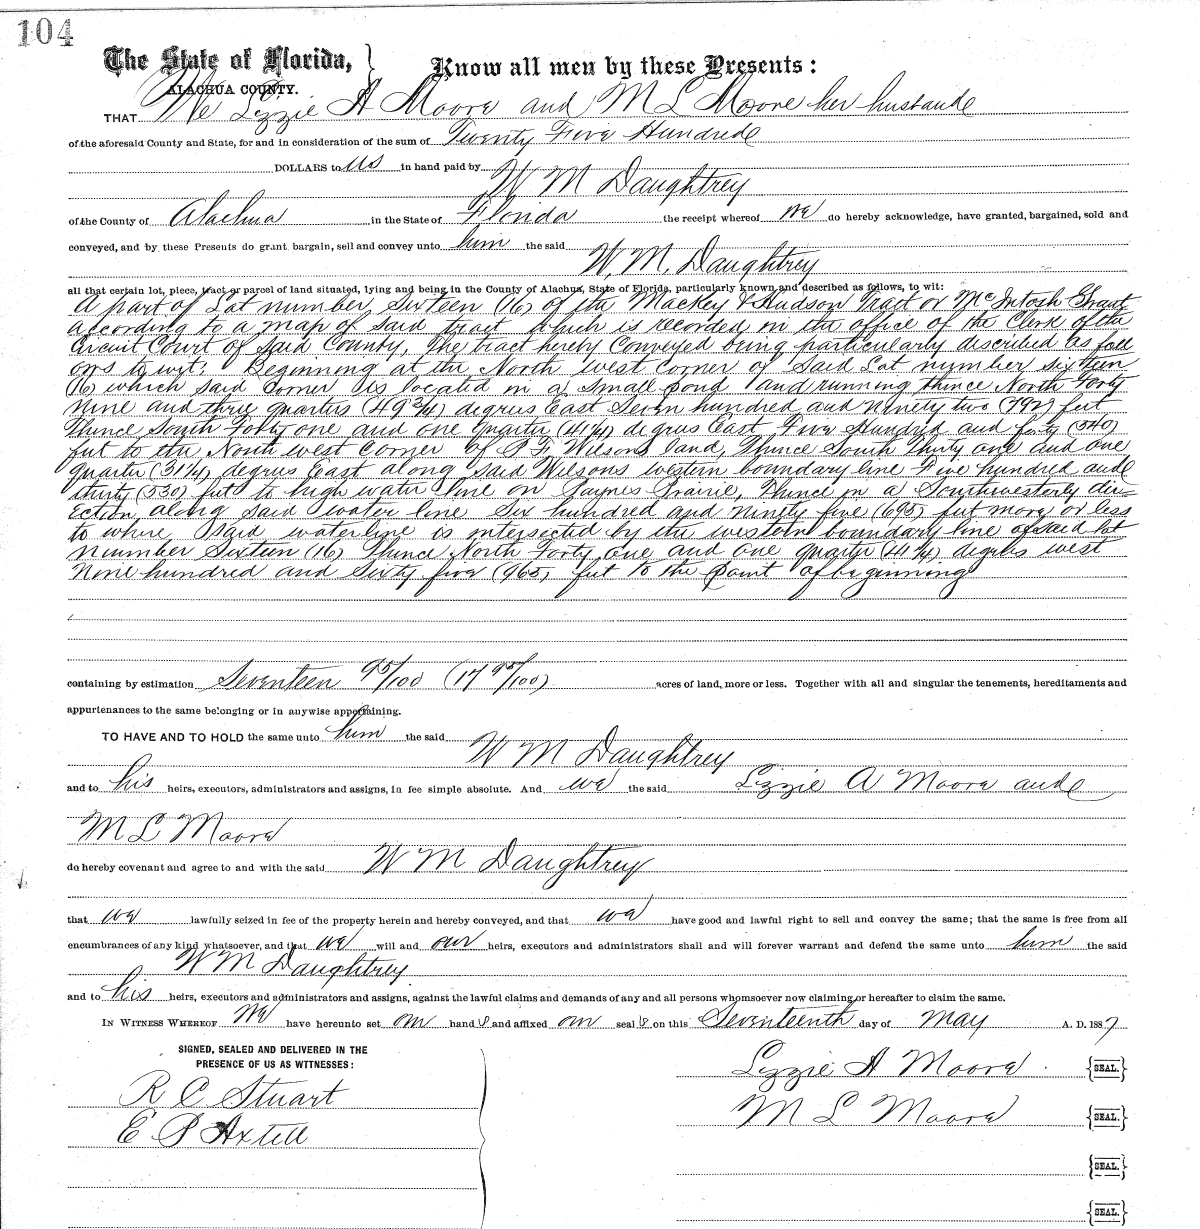 104
The State of Florida,
Know all men by these Presents:
ALACHUA COUNTY.
THAT We Lizzie A Moore and M L Moore her husband
of the aforesaid County and State, for and in consideration of the sum of Twenty Five Hundred
DOLLARS to us in hand paid by
W M Daughtrey
of the County of Alachua in the State of Florida the receipt whereof we do hereby acknowledge, have granted, bargained, sold and
conveyed, and by these Presents do grant bargain, sell and convey unto him the said
W. M. Daughtrey
all that certain lot, piece, tract or parcel of land situated, lying and being in the County of Alachua, State of Florida, particularly known and described as follows, to wit:
A part of Lot number Sixteen (16) of the Mackey & Hudson Tract or McIntosh Grant
according to a map of said tract which is recorded in the office of the Clerk of the
Circuit Court of said County, The tract hereby Conveyed being particularly discribed as foll
ows to wit: Beginning at the North west Corner of Said Lot number sixteen
(16) which said Corner is located in a small pond and running thence North Forty
nine and three quarters (49 3/4) degrees East Seven hundred and ninety two (792) feet
Thence South Forty one and one quarter (41 1/4) degrees East Five Hundred and forty (540)
feet to the North west Corner of P F Wilsons land, Thence South Thirty one and one
quarter (31 1/4) degrees East along said Wilsons western boundary line Five hundred and
thirty (530) feet to high water line on Paynes Prairie, Thence in a Southwesterly dir-
ection along said water line Six hundred and ninety five (695) feet more or less
to where said waterline is intersected by the western boundary line of said lot
number Sixteen (16) Thence North Forty one and one quarter (41 1/4) degrees west
None hundred and Sixty five (965) feet to the point of beginning
containing by estimation Seventeen 95/100 (17 95/100) acres of land, more or less. Together with all and singular the tenements, hereditaments and
appurtenances to the same belonging or in anywise appertaining.
TO HAVE AND TO HOLD the same unto him the said
W M Daughtrey
and to his heirs, executors, administrators and assigns, in fee simple absolute. And we the said Lizzie A Moore and
M L Moore
do hereby covenant and agree to and with the said W M Daughtrey
that we lawfully seized in fee of the property herein and hereby conveyed, and that we have good and lawful right to sell and convey the same; that the same is free from all
encumbrances of any kind whatsoever, and that we will and our heirs, executors and administrators shall and will forever warrant and defend the same unto him the said
W M Daughtrey
and to his heirs, executors and administrators and assigns, against the lawful claims and demands of any and all persons whomsoever now claiming or hereafter to claim the same.
IN WITNESS WHEREOF We have hereunto set our hand s and affixed our seal s on this Seventeenth day of May A. D. 1887
SIGNED, SEALED AND DELIVERED IN THE
PRESENCE OF US AS WITNESSES:
Lizzie A Moore {SEAL.}
R C Stuart
M L Moore {SEAL.}
E P Axtell
{SEAL.}
{SEAL.}